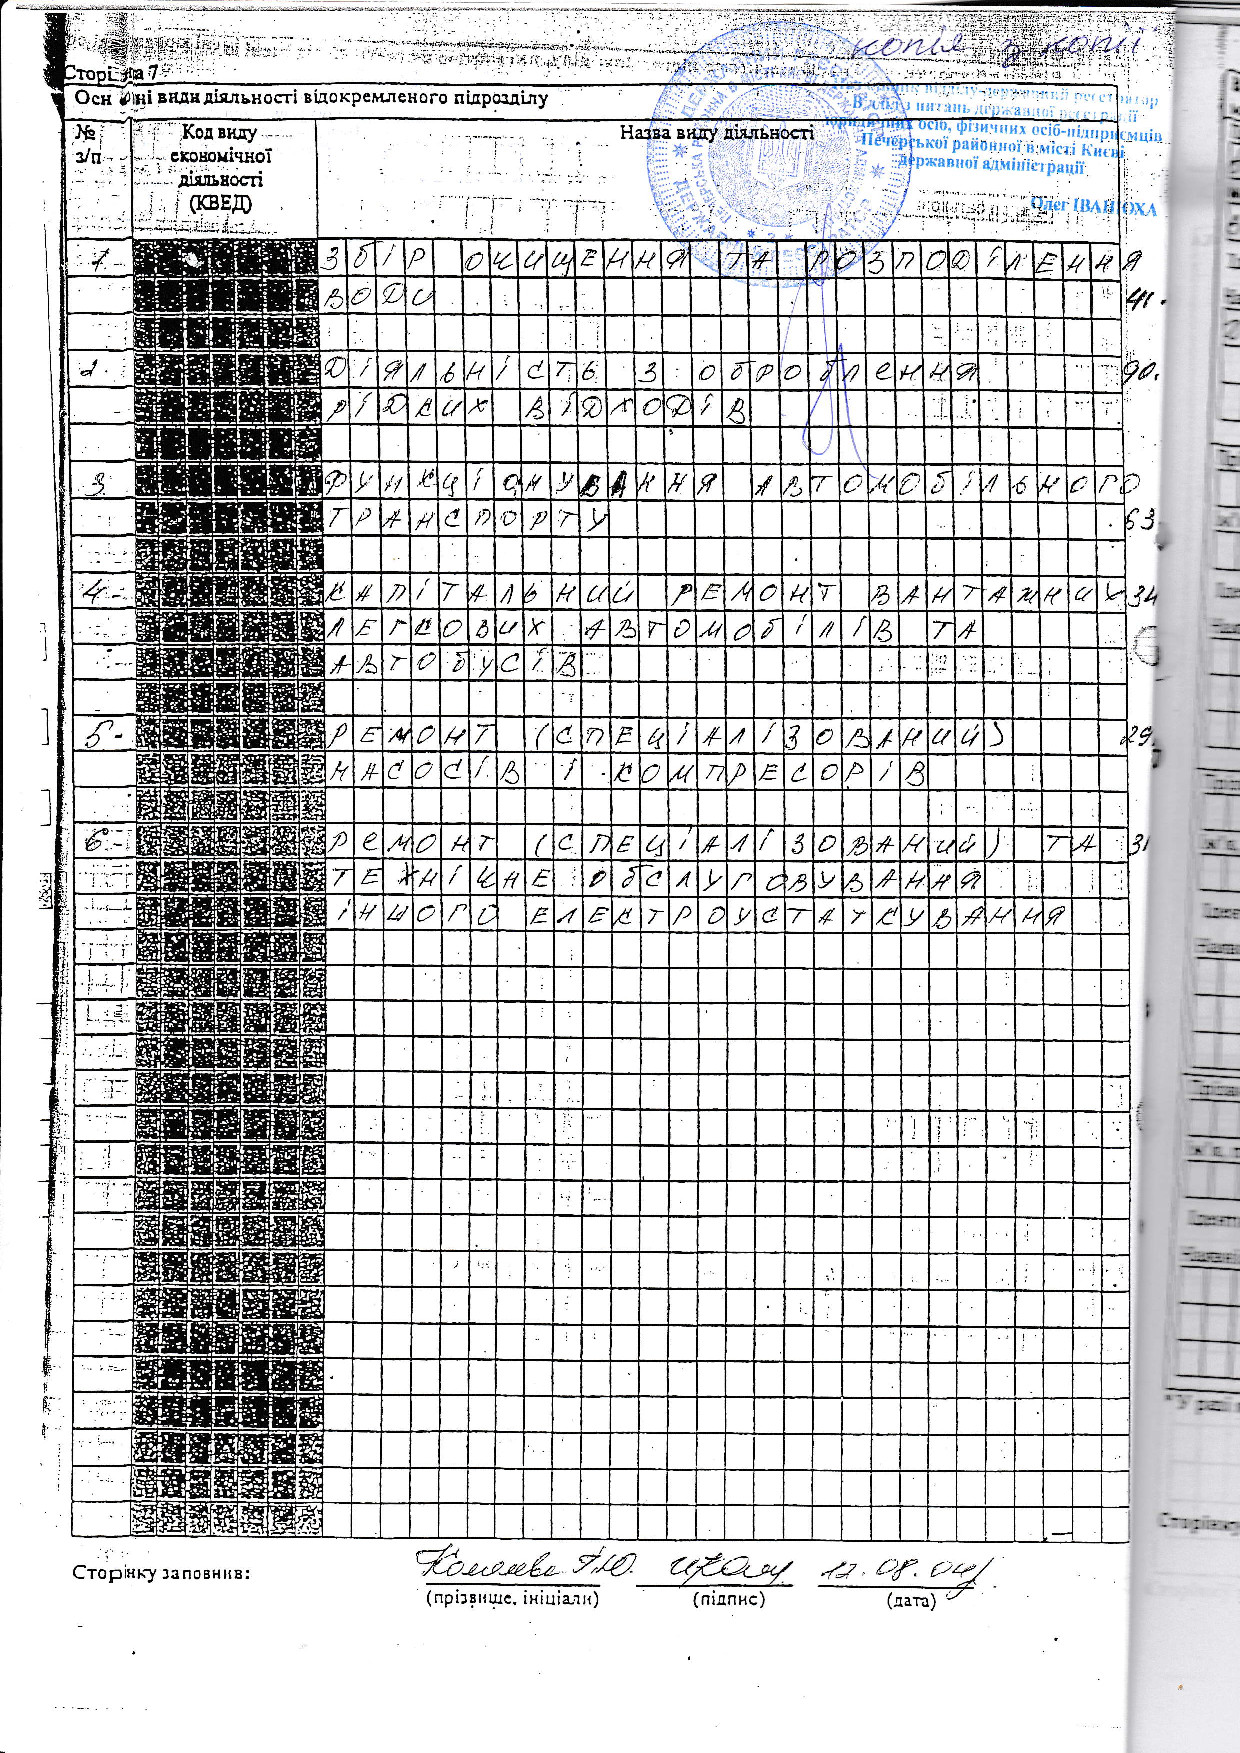 копія з копії
Сторінка 7
Основні види діяльності відокремленого підрозділу
№ з/п
Код виду економічної діяльності (КВЕД)
Назва виду діяльності
відділу-державний реєстратор
Відділ з питань державної реєстрації
юридичних осіб, фізичних осіб-підприємців
Печерської районної в місті Києві
державної адміністрації
Олег ІВАНЮХА
1 ЗБІР ОЧИЩЕННЯ ТА РОЗПОДІЛЕННЯ
ВОДИ 41.
2. ДІЯЛЬНІСТЬ З ОБРОБЛЕННЯ 90.
РІДКИХ ВІДХОДІВ
3 ФУНКЦІОНУВАННЯ АВТОМОБІЛЬНОГО
ТРАНСПОРТУ 63
4 КАПІТАЛЬНИЙ РЕМОНТ ВАНТАЖНИХ 34
ЛЕГКОВИХ АВТОМОБІЛІВ ТА
АВТОБУСІВ
5 РЕМОНТ (СПЕЦІАЛІЗОВАНИЙ) 29.
НАСОСІВ І КОМПРЕСОРІВ
6 РЕМОНТ (СПЕЦІАЛІЗОВАНИЙ) ТА 31
ТЕХНІЧНЕ ОБСЛУГОВУВАННЯ
ІНШОГО ЕЛЕКТРОУСТАТКУВАННЯ
Сторінку заповнив: 12.08.04
(прізвище, ініціали) (підпис) (дата)